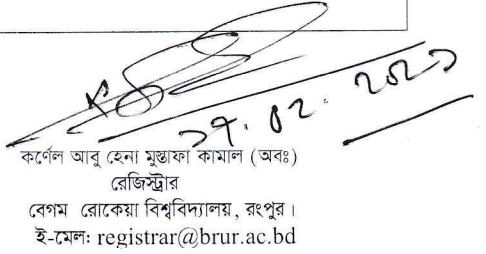 ১৭.০২.২০২১
কর্ণেল আবু হেনা মুস্তাফা কামাল (অবঃ)
রেজিস্ট্রার
বেগম রোকেয়া বিশ্ববিদ্যালয়, রংপুর।
ই-মেল: registrar@brur.ac.bd